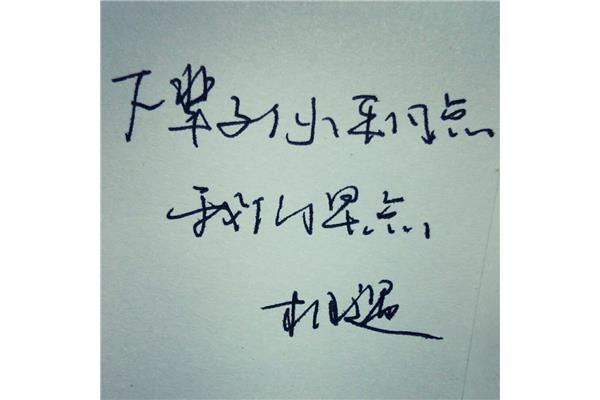 下辈子你点
我们早点
相遇